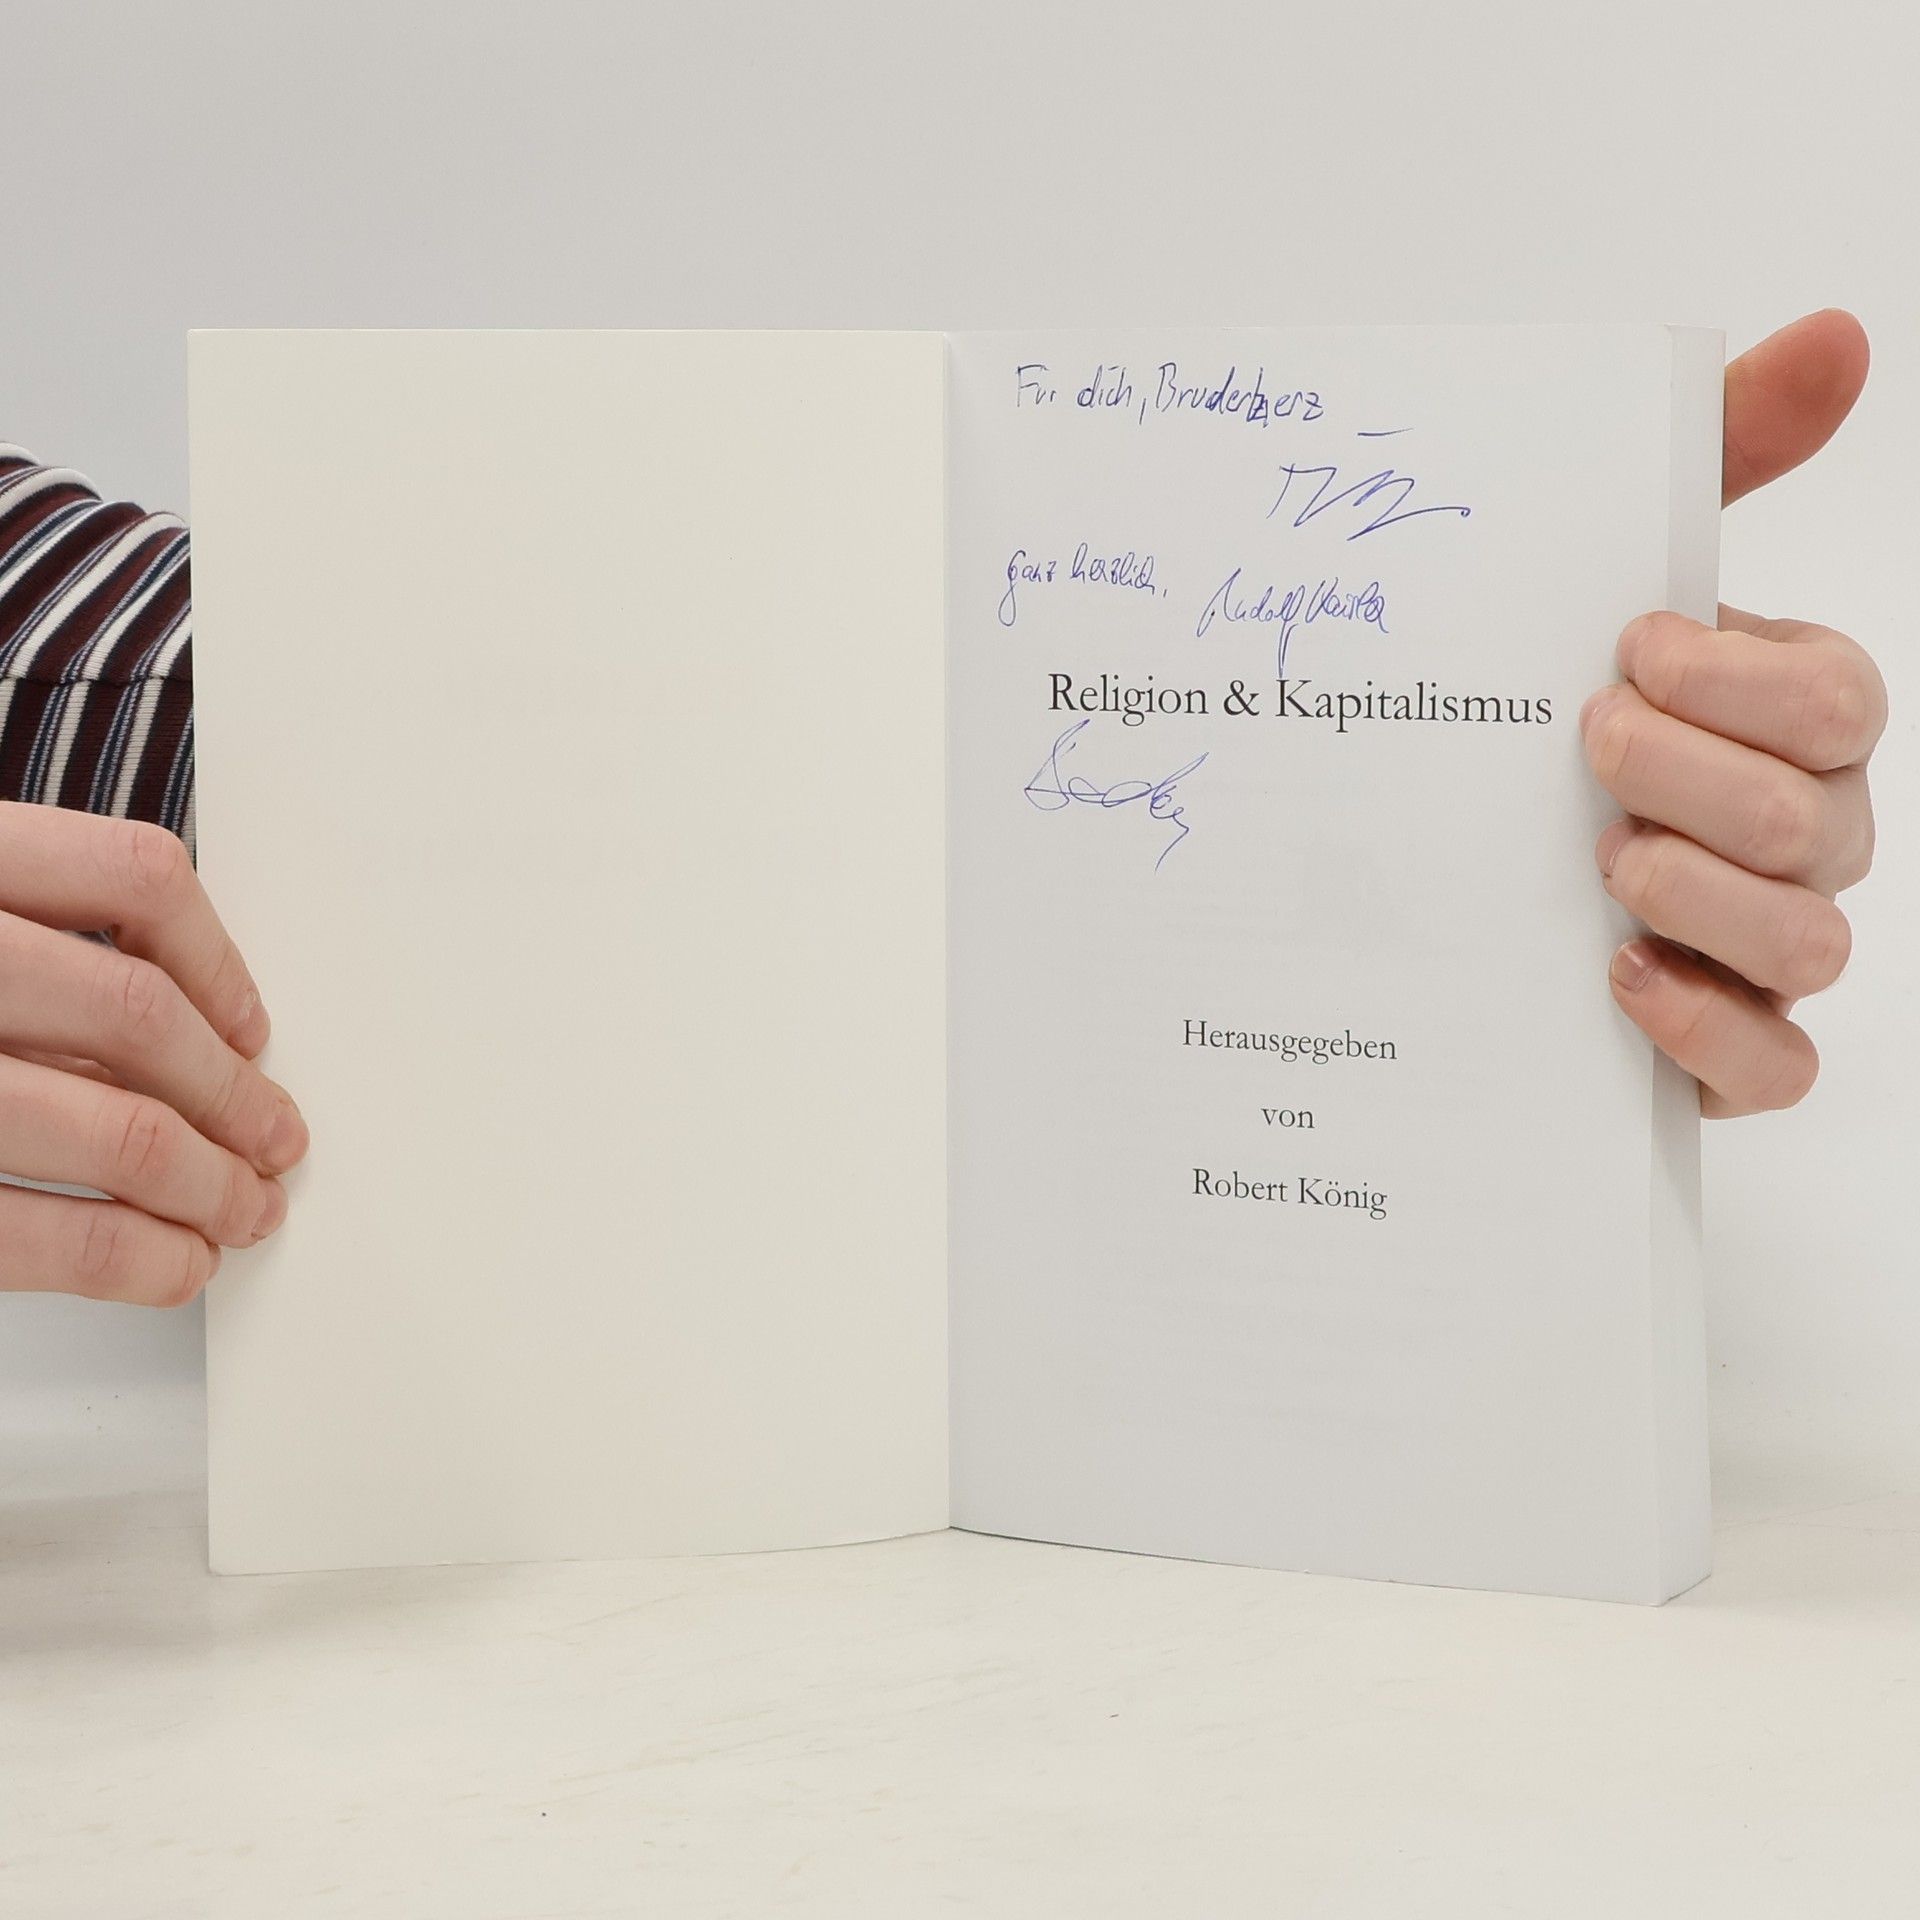 Für dich, Bruderherz
ganz herzlich, Rudolf
Religion & Kapitalismus
Herausgegeben
von
Robert König